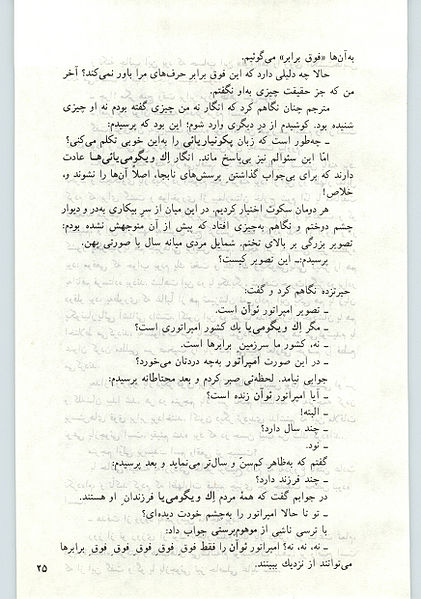 به‌آن‌ها «فوق برابر» می‌گوئیم.
حالا چه دلیلی دارد که این فوق برابر حرف‌های مرا باور نمی‌کند؟ آخر
من که جز حقیقت چیزی به‌او نگفتم.
مترجم چنان نگاهم کرد که انگار نه من چیزی گفته بودم نه او چیزی
شنیده بود. کوشیدم از در دیگری وارد شوم؛ این بود که پرسیدم:
ـ چه‌طور است که زبان پکونیاریائی را به‌این خوبی تکلم می‌کنی؟
امّا این سئوالم نیز بی‌پاسخ ماند. انگار اِك ویگومی‌یائی‌هـا عادت
دارند که برای بی‌جواب گذاشتن ِ پرسش‌های نابجا، اصلاً آن‌ها را نشنوند و،
خلاص!
هر دومان سکوت اختیار کردیم. در این میان از سرِ بیکاری به‌در و دیوار
چشم دوختم و نگاهم به‌چیزی افتاد که پیش از آن متوجهش نشده بودم:
تصویر بزرگی بر بالای تختم. شمایل مردی میانه سال با صورتی پهن.
پرسیدم:ـ این تصویر کیست؟
حیرتزده نگاهم کرد و گفت:
ـ تصویر امپراتور توآن است.
ـ مگر اِك ویگومی‌یا یك کشور امپراتوری است؟
ـ نه، کشور ما سرزمین ِ برابرها است.
ـ در این صورت امپراتور به‌چه دردتان می‌خورد؟
جوابی نیامد. لحظه‌ئی صبر کردم و بعد محتاطانه پرسیدم:
ـ آیا امپراتور توآن زنده است؟
ـ البته!
ـ چند سال دارد؟
ـ نود.
گفتم که به‌ظاهر کم‌سنّ و سال‌تر می‌نماید و بعد پرسیدم:
ـ چند فرزند دارد؟
در جوابم گفت که همهٔ مردم اِك ویگومی‌یا فرزندان ِ او هستند.
ـ تو تا حالا امپراتور را به‌چشم خودت دیده‌ای؟
با ترسی ناشی از موهوم‌پرستی جواب داد:
ـ نه، نه، نه؟ امپراتور توآن را فقط فوق ِ فوق ِ فوق ِ فوق ِ فوق ِ برابرها
می‌توانند از نزدیك ببینند.
۲۵